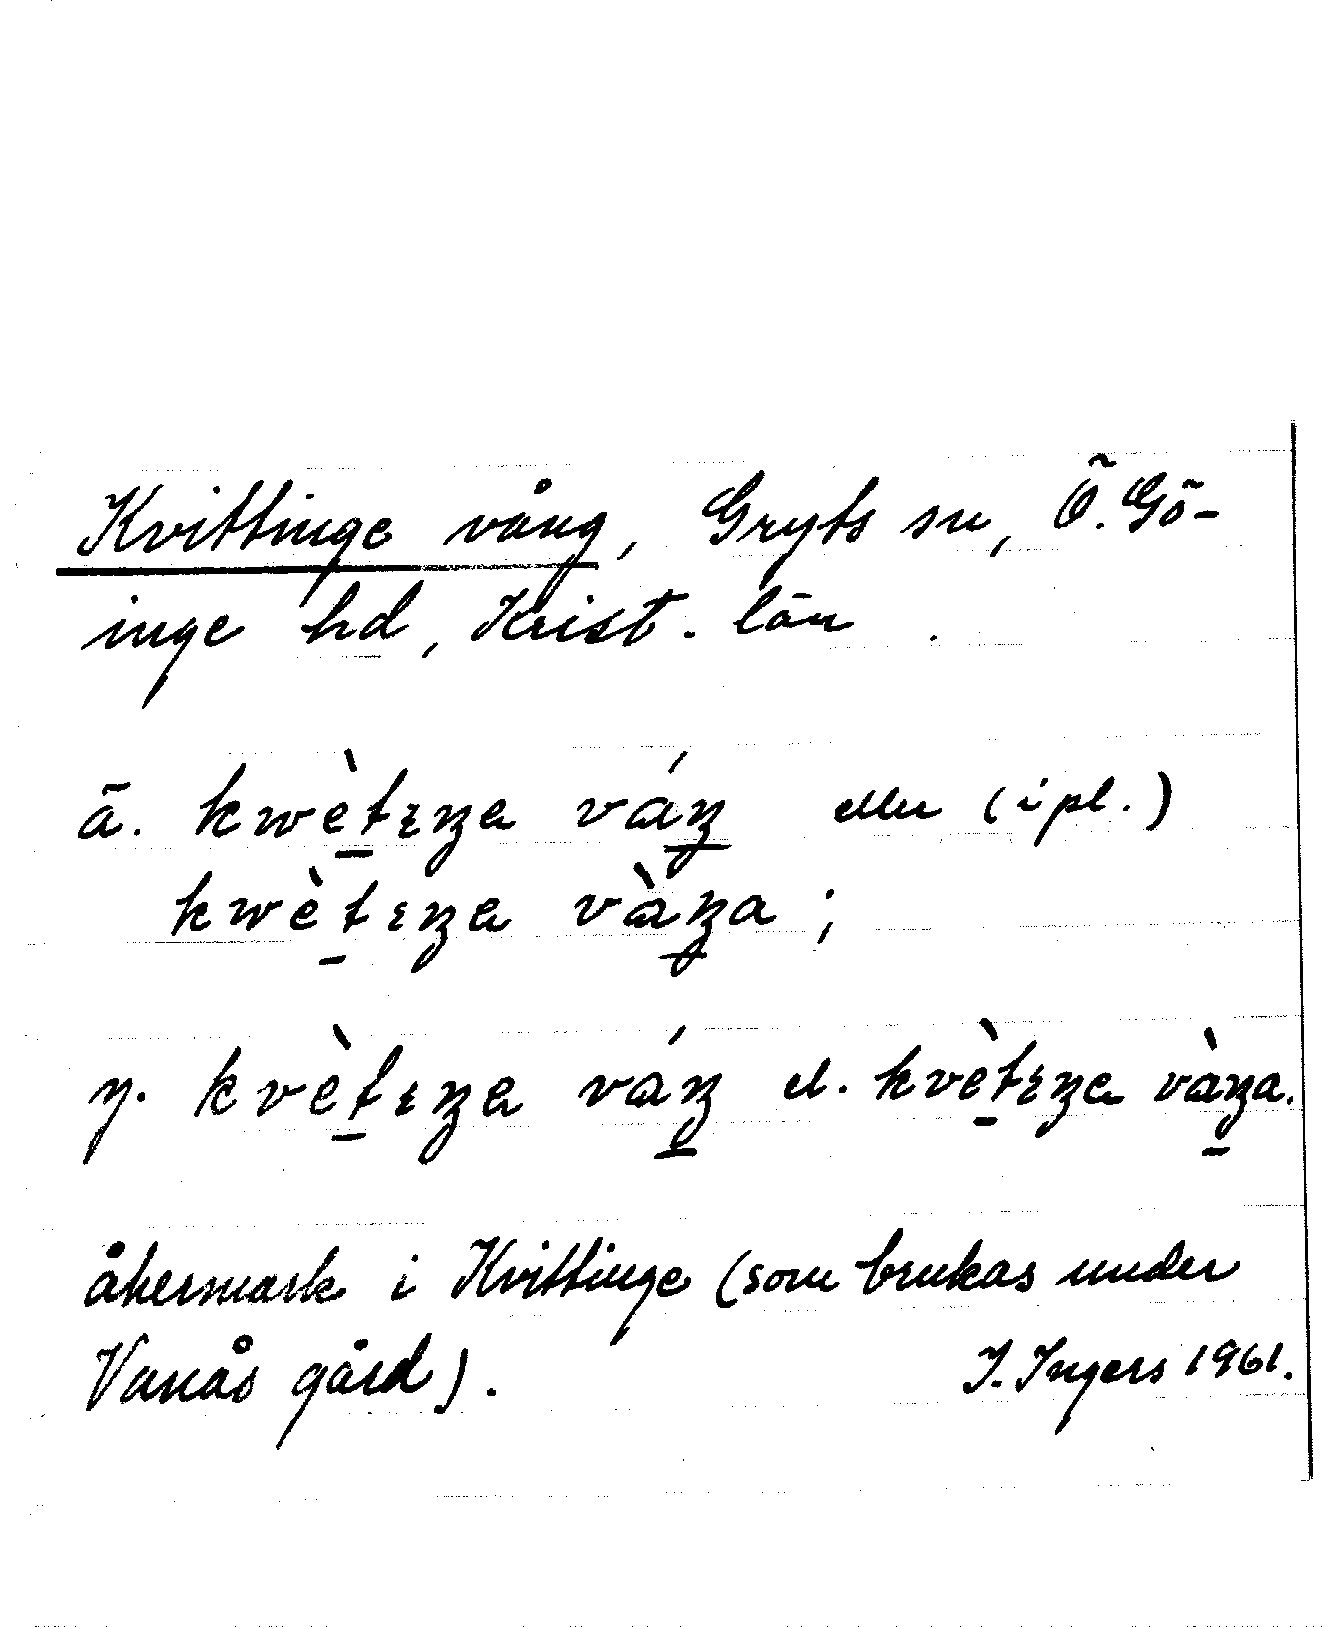 Kvittinge vång, Gryts sn, Ö. Gö-
inge hd, Krist. län.
ä. kwètɪŋa váŋ eller (i pl.)
kwètɪŋa vàŋa;
y. kvètɪŋa váŋ el. kvètɪŋa vàŋa.
åkermark i Kvittinge (som brukas under
Vanås gård).
I. Ingers 1961.